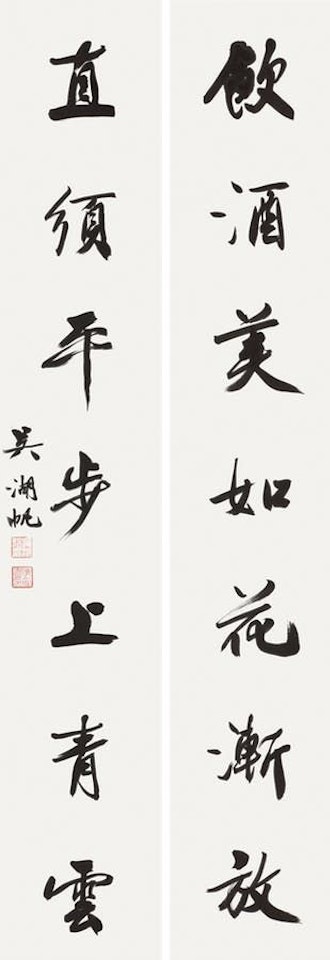 飲酒美如花漸放
直須平步上青雲
吳湖帆